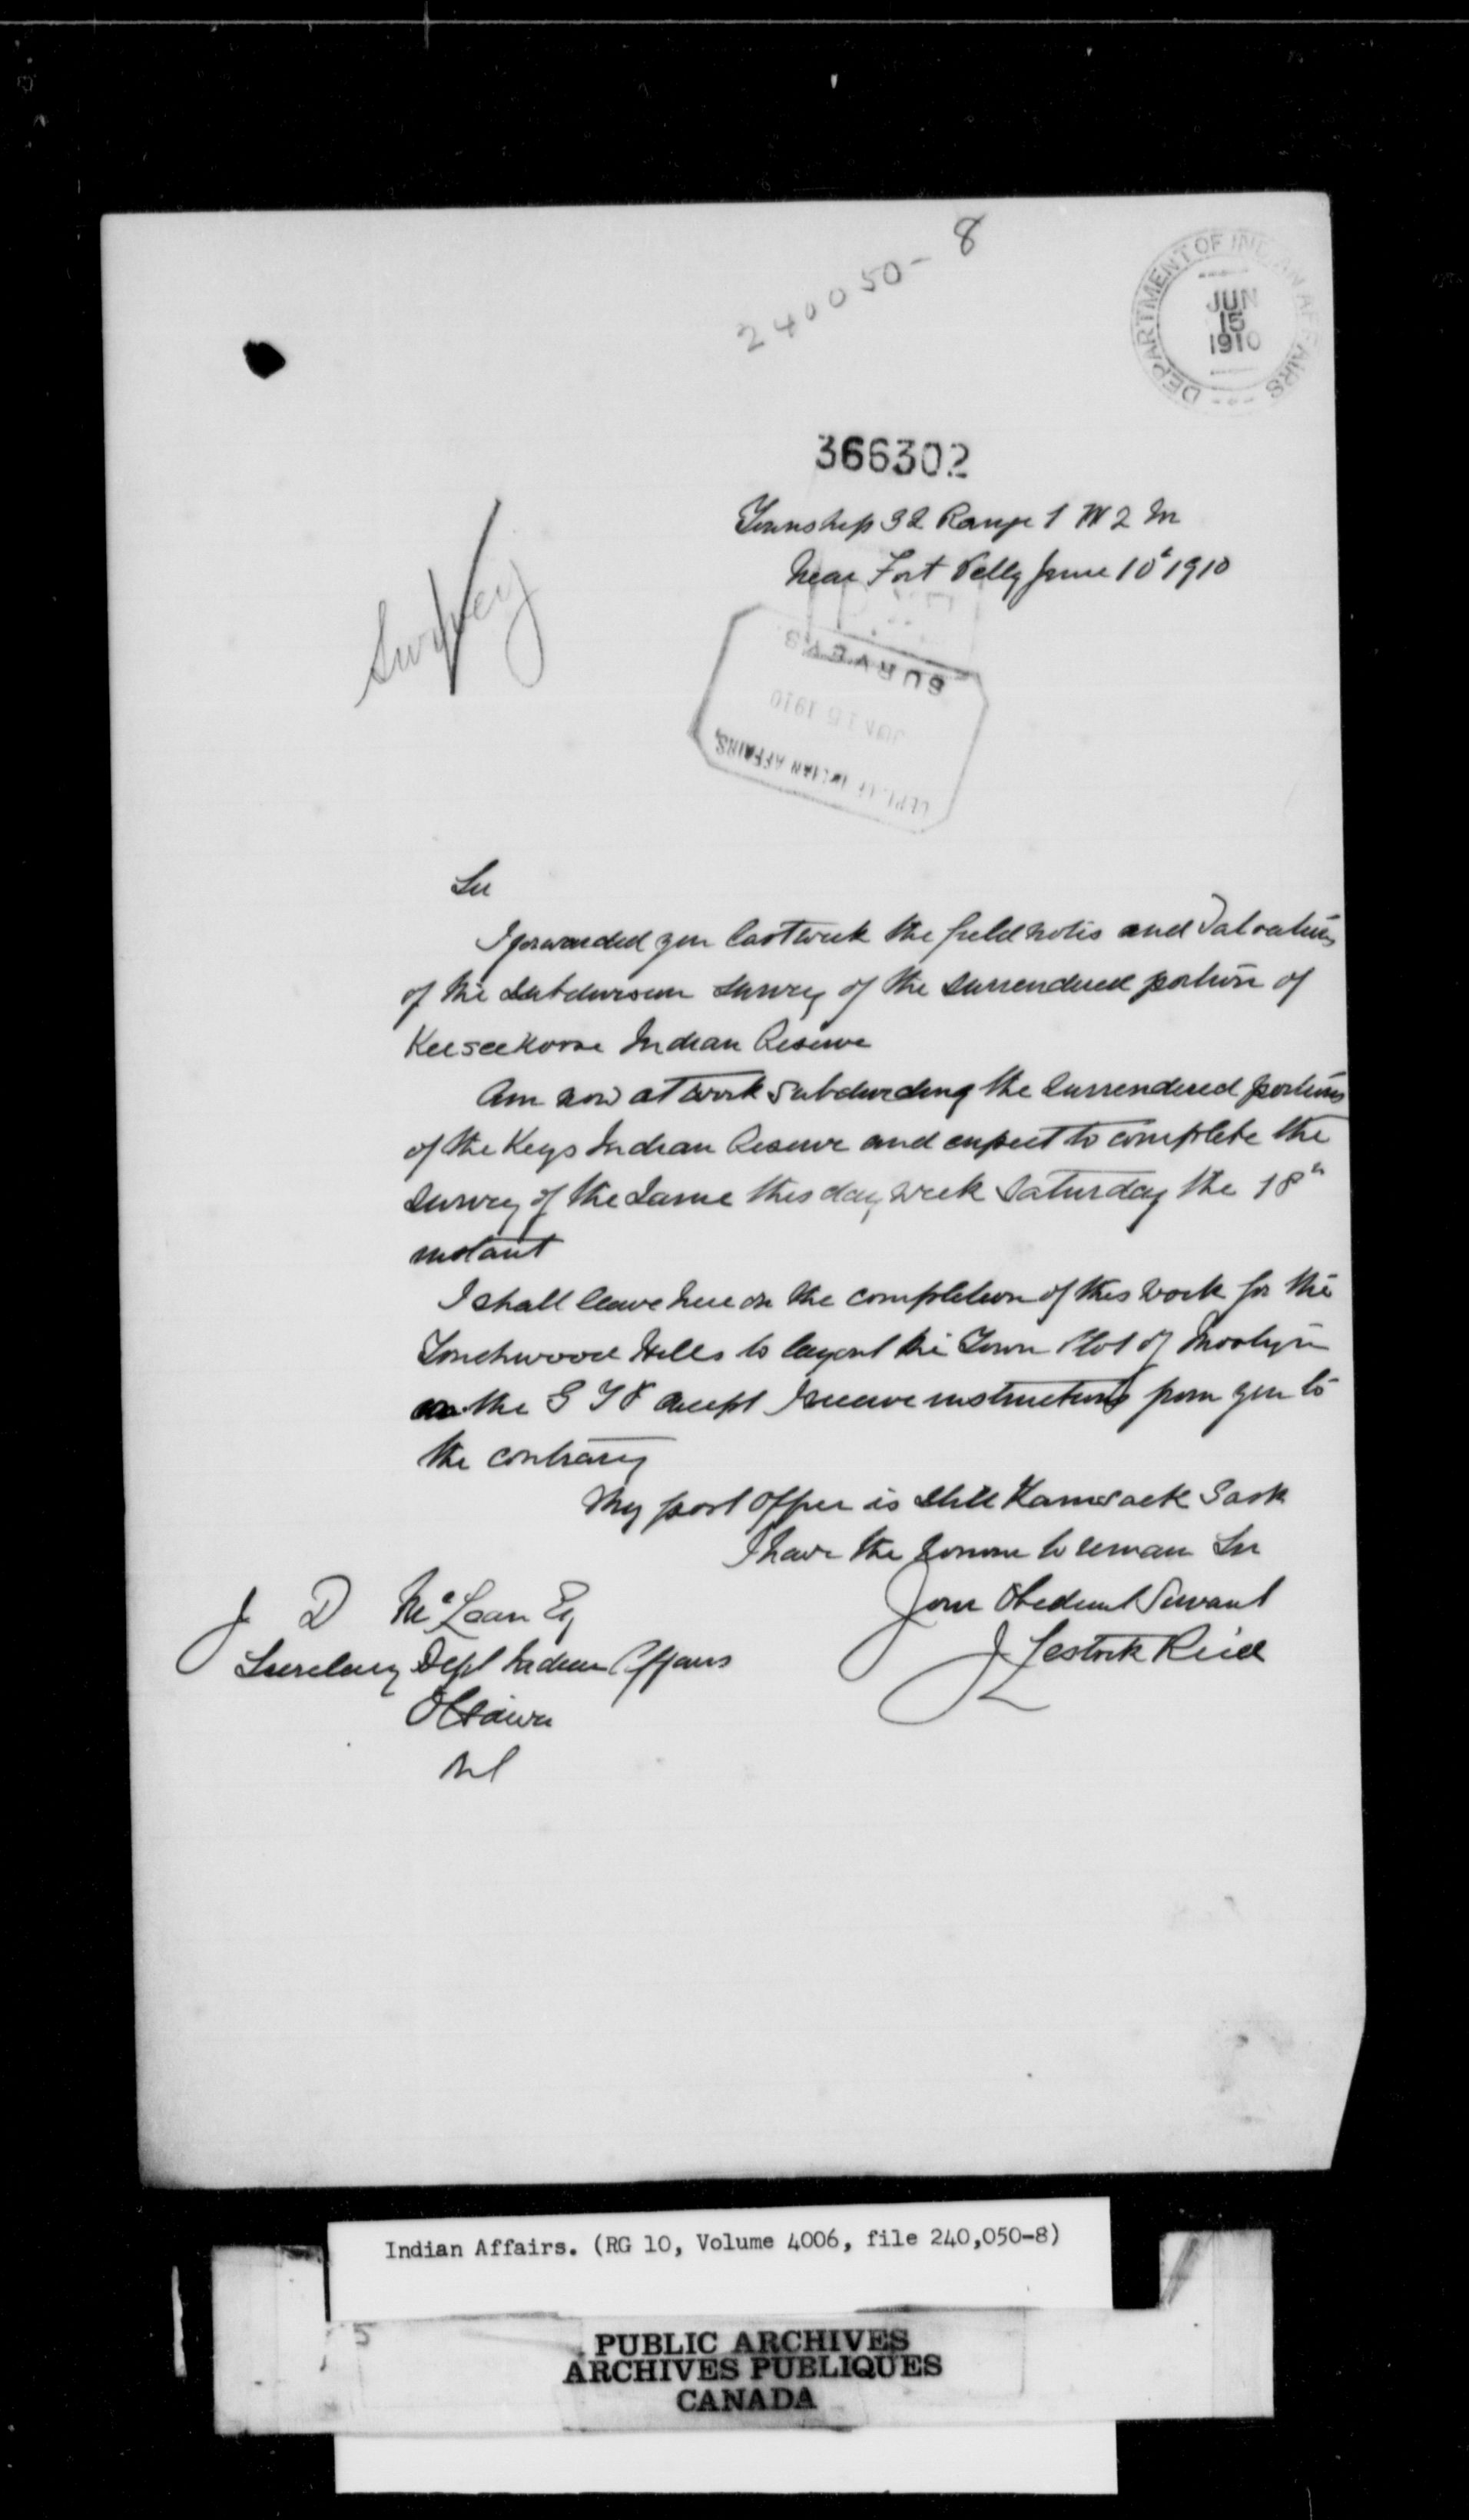 240050-8
DEPARTMENT OF INDIAN AFFAIRS
JUN
15
1910
366302
Township 32 Range 1 W 2 M
Near Fort Pelly June 10th 1910
Survey
SURVEYS
JUN 15 1910
DEPT. OF INDIAN AFFAIRS,
Sir
I forwarded you last week the field notes and Valuations
of the Subdivision Survey of the Surrendered portion of
Keeseekoose Indian Reserve
Am now at work Subdividing the Surrendered portions
of the Keys Indian Reserve and expect to complete the
Survey of the Same this day week Saturday the 18th
instant
I shall leave here on the completion of this work for the
Touchwood Hills to layout the Town Plot of
on the G T P except I receive instructions from you to
the contrary
My post office is Still Kamsack Sask
I have the honour to remain Sir
Your Obedient Servant
J Lestock Reid
J D McLean Esq
Secretary Dept Indian Affairs
Ottawa
Indian Affairs. (RG 10, Volume 4006, file 240,050-8)
5
PUBLIC ARCHIVES
ARCHIVES PUBLIQUES
CANADA